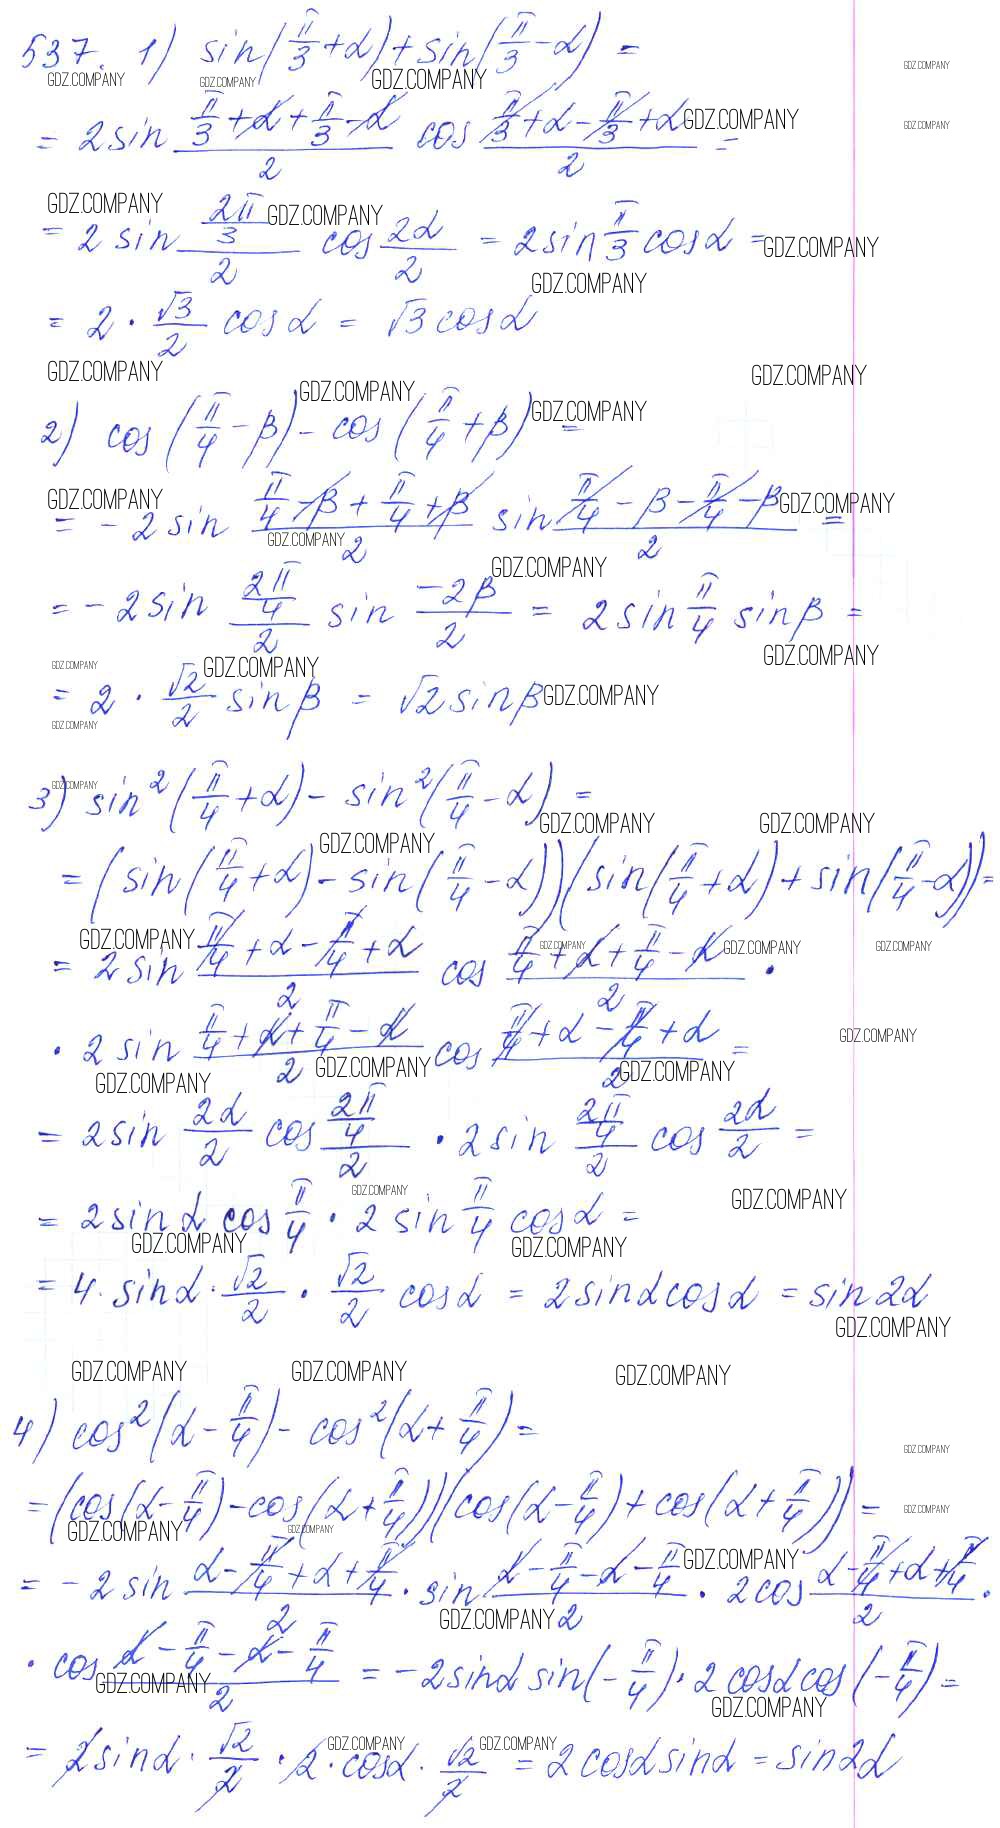 537. 1) sin(π/3 + α) + sin(π/3 − α) =
= 2 sin (π/3 + α + π/3 − α)/2 cos (π/3 + α − π/3 + α)/2 =
= 2 sin (2π/3)/2 cos 2α/2 = 2 sin π/3 cos α =
= 2 · √3/2 cos α = √3 cos α
2) cos(π/4 − β) − cos(π/4 + β) =
= − 2 sin (π/4 − β + π/4 + β)/2 sin (π/4 − β − π/4 − β)/2 =
= − 2 sin (2π/4)/2 sin (−2β)/2 = 2 sin π/4 sin β =
= 2 · √2/2 sin β = √2 sin β
3) sin²(π/4 + α) − sin²(π/4 − α) =
= (sin(π/4 + α) − sin(π/4 − α))(sin(π/4 + α) + sin(π/4 − α)) =
= 2 sin (π/4 + α − π/4 + α)/2 cos (π/4 + α + π/4 − α)/2 ·
· 2 sin (π/4 + α + π/4 − α)/2 cos (π/4 + α − π/4 + α)/2 =
= 2 sin 2α/2 cos (2π/4)/2 · 2 sin (2π/4)/2 cos 2α/2 =
= 2 sin α cos π/4 · 2 sin π/4 cos α =
= 4 · sin α · √2/2 · √2/2 cos α = 2 sin α cos α = sin 2α
4) cos²(α − π/4) − cos²(α + π/4) =
= (cos(α − π/4) − cos(α + π/4))(cos(α − π/4) + cos(α + π/4)) =
= − 2 sin (α − π/4 + α + π/4)/2 · sin (α − π/4 − α − π/4)/2 · 2 cos (α − π/4 + α + π/4)/2 ·
· cos (α − π/4 − α − π/4)/2 = − 2 sin α sin(− π/4) · 2 cos α cos(− π/4) =
= 2 sin α · √2/2 · 2 · cos α · √2/2 = 2 cos α sin α = sin 2α
GDZ.COMPANY